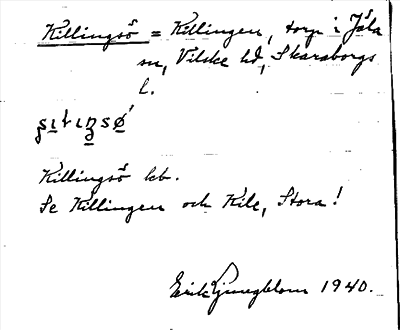 Killingsö = Killingen, torp i Jäla
sn, Vilske hd, Skaraborgs
l.
Killingsö kb.
Se Killingen och Kile, Stora!
Erik Ljungblom 1940.